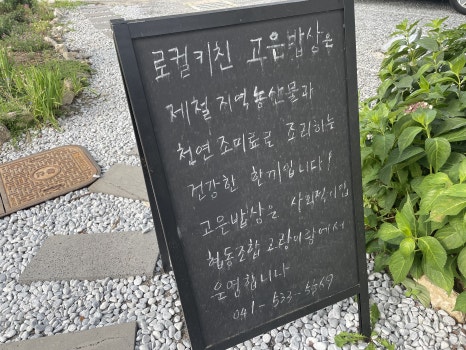 로컬키친 고은밥상은
제철 지역농산물과
천연조미료로 조리하는
건강한 한끼입니다!
고은밥상은 사회적기업
협동조합 고랑이랑에서
운영합니다
041-533-